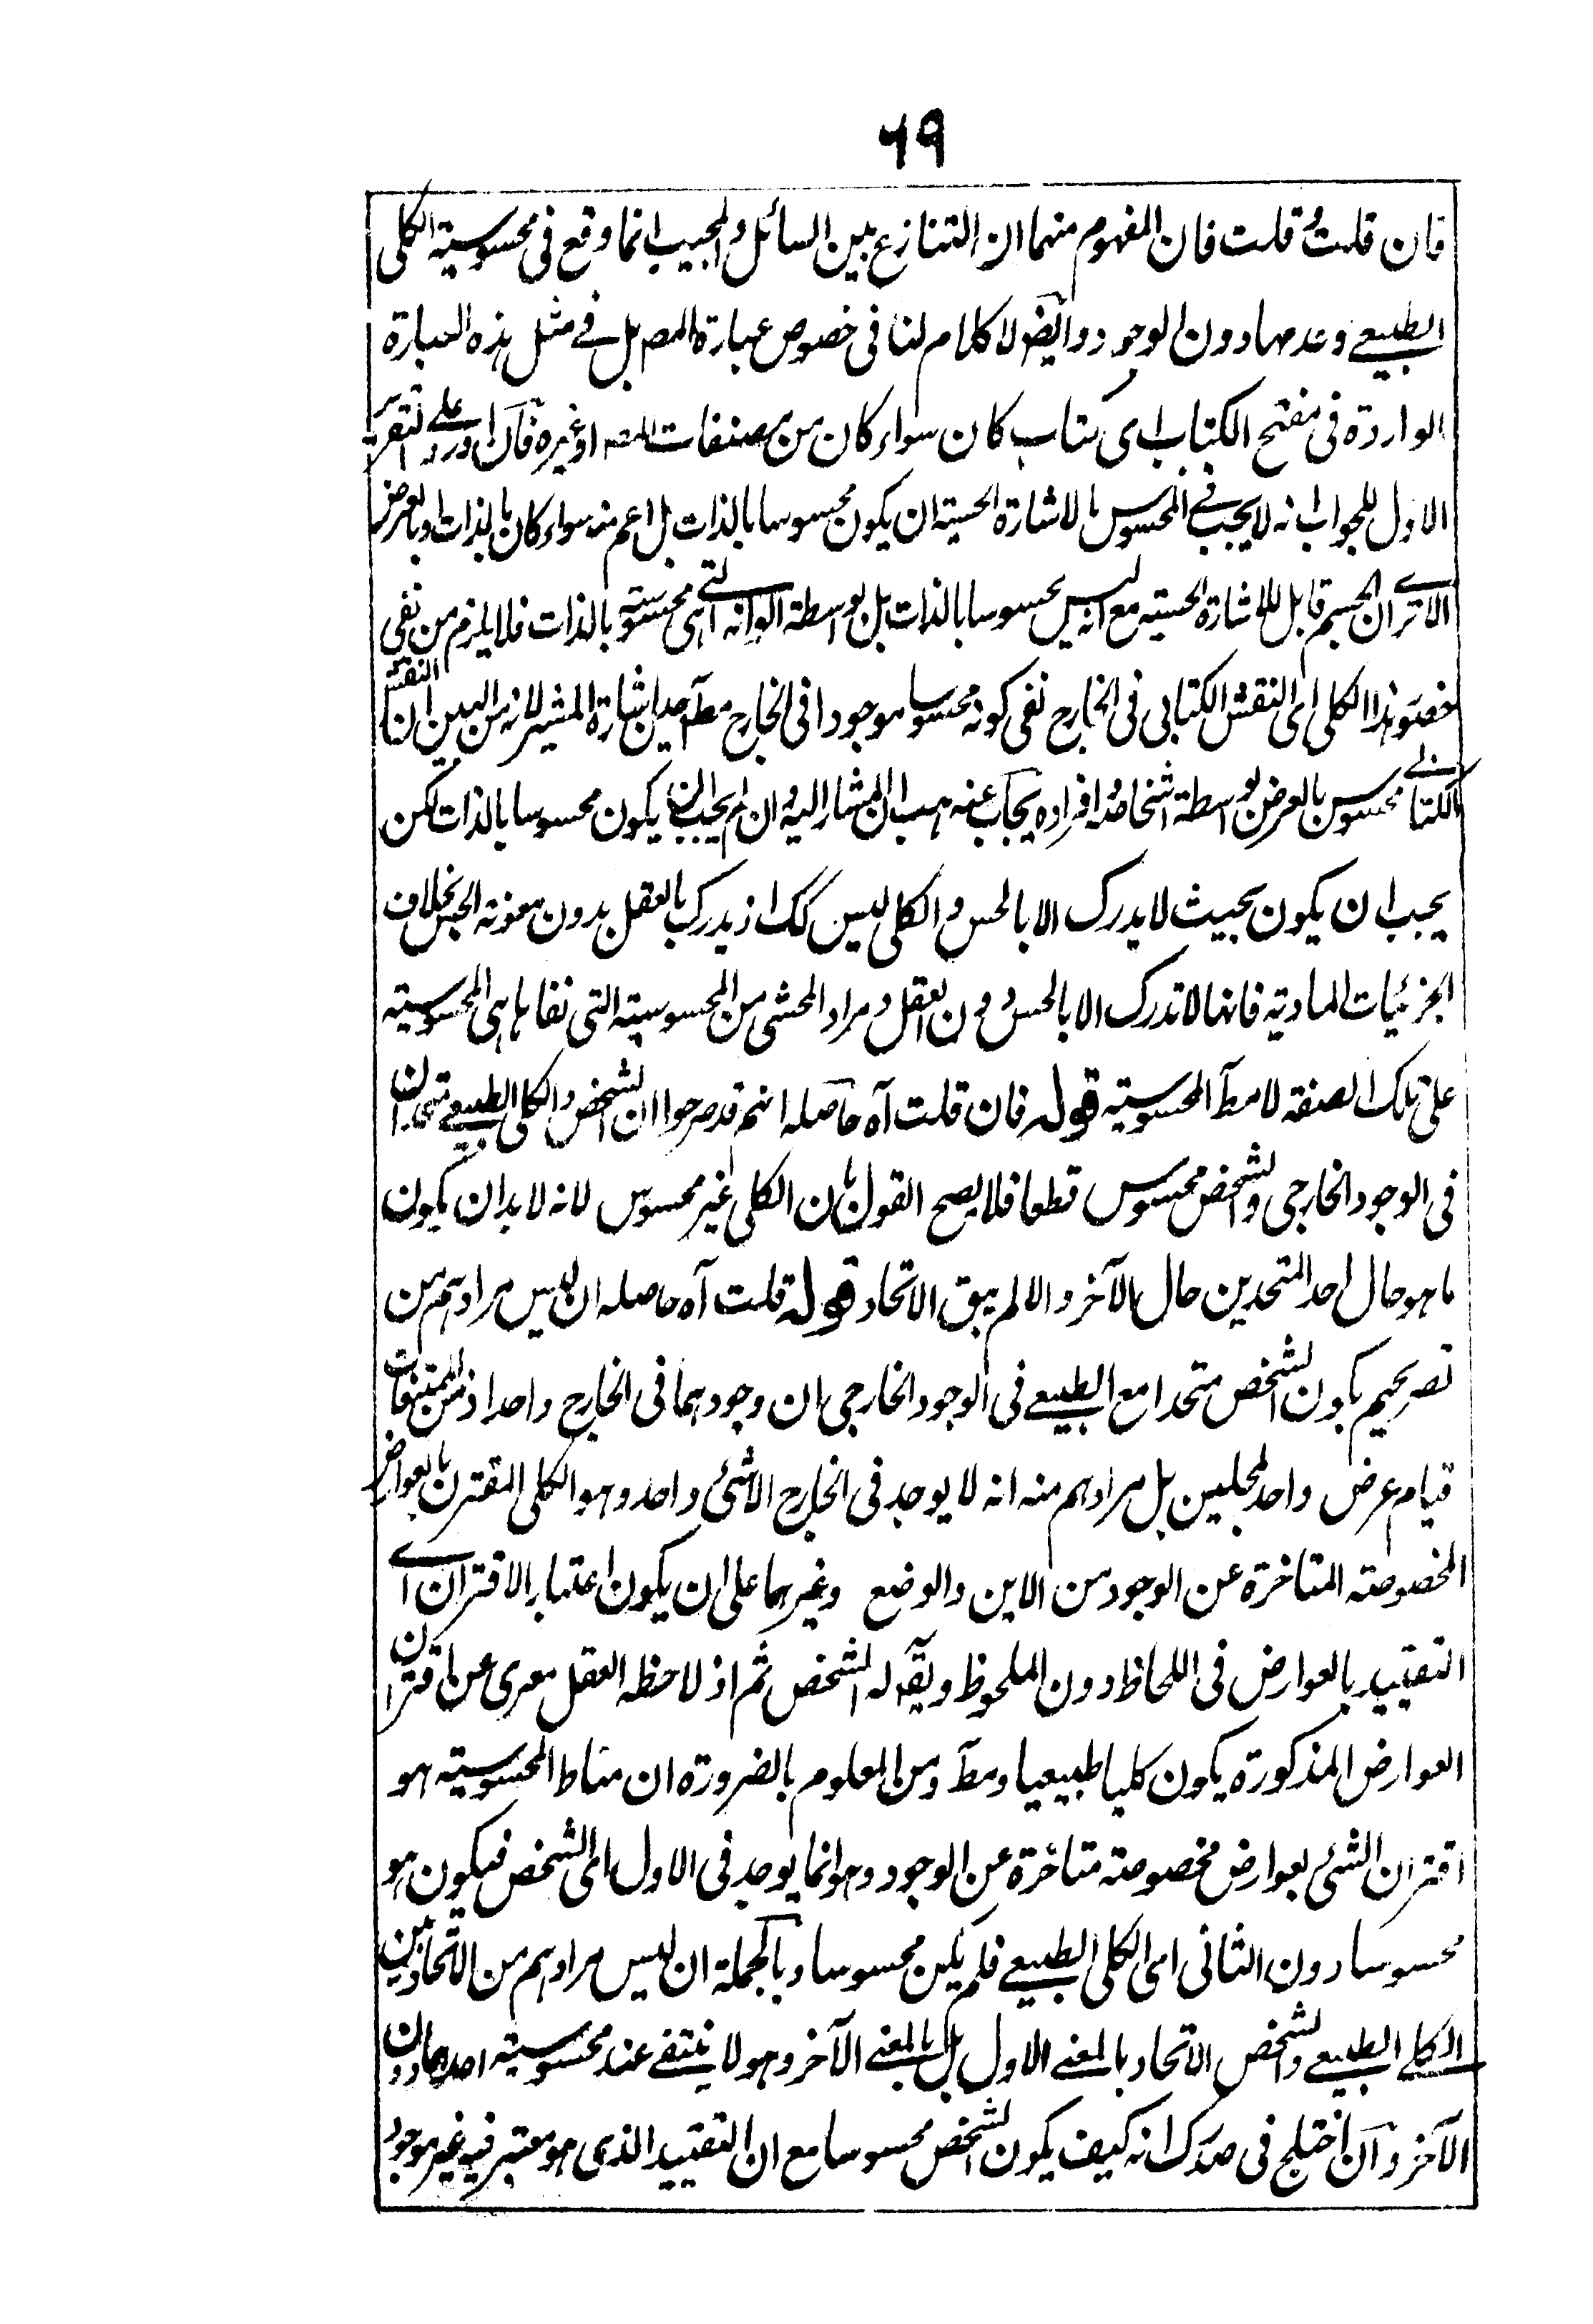 ٦٩
فان قلتُ قلت فان المفهوم منهما ان التنازع بين السائل والمجيب انما وقع فى محسوسية الكلى
الطبيعے وعدمها دون الوجود وايضا لا كلام لنا فى خصوص عبارة المصـ بل فے مثل هذه العبارة
الواردة فى مفتح الكتاب اى كتاب كان سواء كان من مصنفات المصـ او غيره فان اورد علے تقرير
الاول للجواب انه لا يجب فے المحسوس بالاشارة الحسية ان يكون محسوسا بالذات بل اعم منه سواء كان بالذات او بالعرض
الا ترے ان الجسم قابل للاشارة الحسية مع انه ليس محسوسا بالذات بل بواسطة الوانه التے هى محسوسة بالذات فلا يلزم من نفى
حضور هذا الكلى اى النقش الكتابى فى الخارج نفى كونه محسوسا موجودا فى الخارج مطـ حين اشارة المشير لانه من البين ان النقش
الكتابے محسوس بالعرض بواسطة اشخاصه وافراده يجاب عنه هب ان المشار اليه وان لم يجب ان يكون محسوسا بالذات لكن
يجب ان يكون بحيث لا يدرك الا بالحس والكلى ليس كك اذ يدرك بالعقل بدون معونة الحس بخلاف
الجزئيات المادية فانها لا تدرك الا بالحس دون العقل ومراد المحشى من المحسوسية التى نفاها هى المحسوسية
على تلك الصفة لا مطـ المحسوسية قوله فان قلت آه حاصله انهم قد صرحوا ان الشخص والكلى الطبيعے متحدان
فى الوجود الخارجى والشخص محسوس قطعا فلا يصح القول بان الكلى غير محسوس لانه لا بد ان يكون
ما هو حال احد المتحدين حال الآخر والا لم يبق الاتحاد قوله قلت آه حاصله ان ليس مرادهم من
تصريحهم بكون الشخص متحدا مع الطبيعے فى الوجود الخارجى ان وجودهما فى الخارج واحد اذ من الممتنعات
قيام عرض واحد لمحلين بل مرادهم منه انه لا يوجد فى الخارج الا شئ واحد وهو الكلى المقترن بالعوارض
المخصوصة المتاخرة عن الوجود من الاين والوضع وغيرهما على ان يكون اعتبار الاقتران اے
التقييد بالعوارض فى اللحاظ دون الملحوظ ويقـ له الشخص ثم اذ لاحظه العقل معرى عن اقتران
العوارض المذكورة يكون كليا طبيعيا ومطـ ومن المعلوم بالضرورة ان مناط المحسوسية هو
اقتران الشئ بعوارض مخصوصة متاخرة عن الوجود وهو انما يوجد فى الاول اى الشخص فيكون هو
محسوسا دون الثانى اى الكلى الطبيعے فلم يكن محسوسا وبالجملة ان ليس مرادهم من الاتحاد بين
الكلے الطبيعے والشخص الاتحاد بالمعنے الاول بل بالمعنے الآخر وهو لا ينتفے عند محسوسية احدهما دون
الآخر وان اختلج فى صدرك انه كيف يكون الشخص محسوسا مع ان التقييد الذى هو معتبر فيه غير موجود